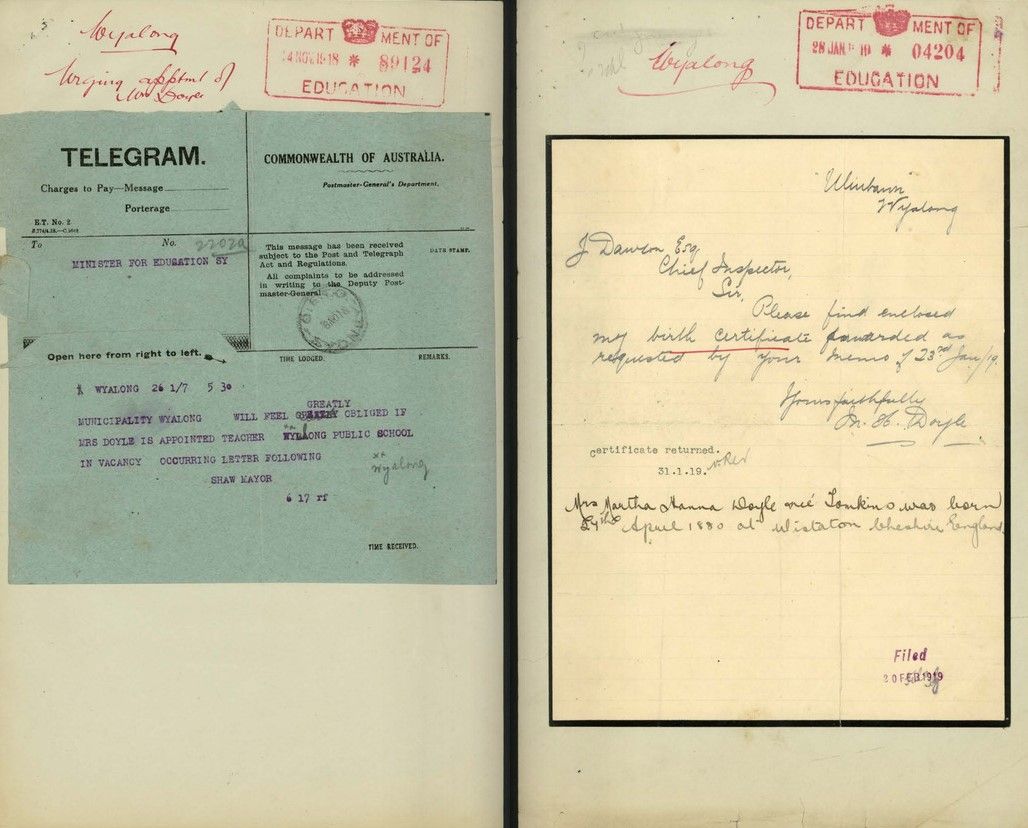 Wyalong
Urging apptmt of
Mrs Doyle
DEPARTMENT OF
14 NOV. 1918 * 89124
EDUCATION
TELEGRAM.
Charges to Pay—Message
Porterage
E.T. No. 2
COMMONWEALTH OF AUSTRALIA.
Postmaster-General's Department.
To No. 2202a
MINISTER FOR EDUSATION SY
This message has been received
subject to the Post and Telegraph
Act and Regulations.
All complaints to be addressed
in writing to the Deputy Post-
master-General
DATE STAMP.
Open here from right to left.
TIME LODGED.
REMARKS.
WYALONG 26 1/7 5 30
GREATLY
MUNICIPALITY WYALONG WILL FEEL OBLIGED IF
MRS DOYLE IS APPOINTED TEACHER WYLAONG PUBLIC SCHOOL
IN VACANCY OCCURING LETTER FOLLOWING
xx
Wyalong
SHAW MAYOR
6 17 rf
TIME RECEIVED.
Wyalong
DEPARTMENT OF
28 JAN. 19 * 04204
EDUCATION
Wyalong
J Dawson Esq
Chief Inspector,
Sir,
Please find enclosed
my birth certificate forwarded as
requested by your memo of 23rd Jan/19.
Yours faithfully
M. H. Doyle
Certificate returned.
31.1.19.
Mrs Martha Hanna Doyle neé Tonkins was born
April 1880 at Wistaton Cheshire England.
Filed
20 FEB 1919